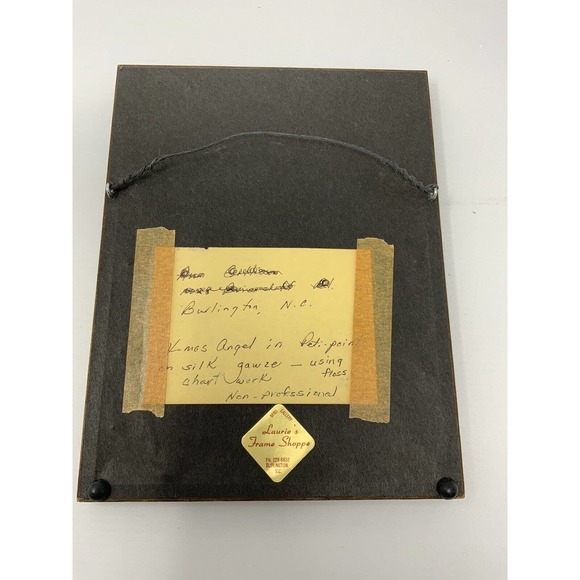 Burlington, N.C.
X-mas Angel in Peti-poin
on silk gawze - using
floss
chart work
Non-professional
AND GALLERY
Laurie's
Frame Shoppe
BURLINGTON
N.C.